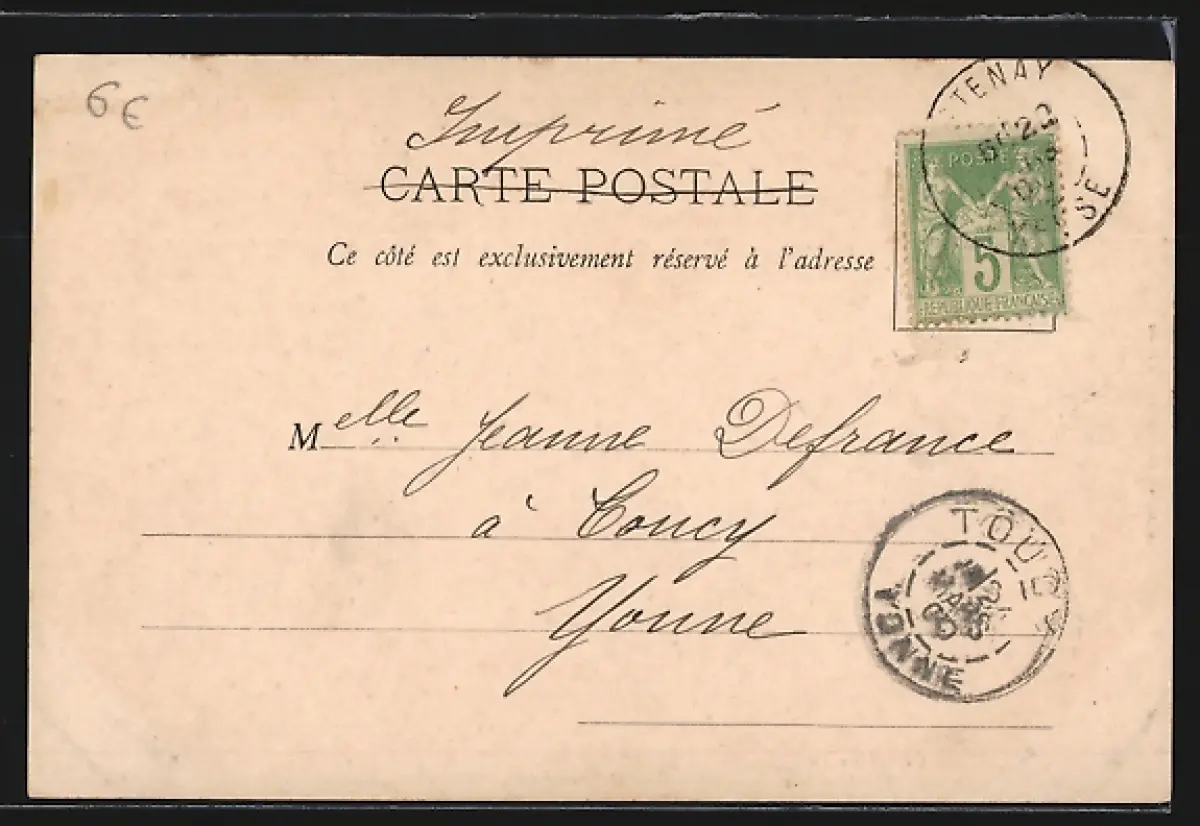 6€
Imprimé
CARTE POSTALE
Ce côté est exclusivement réservé à l'adresse
TENAY
POSTE
5
REPUBLIQUE FRANÇAISE
Melle Jeanne Defrance
à Toucy
Yonne
TOUCY
YONNE